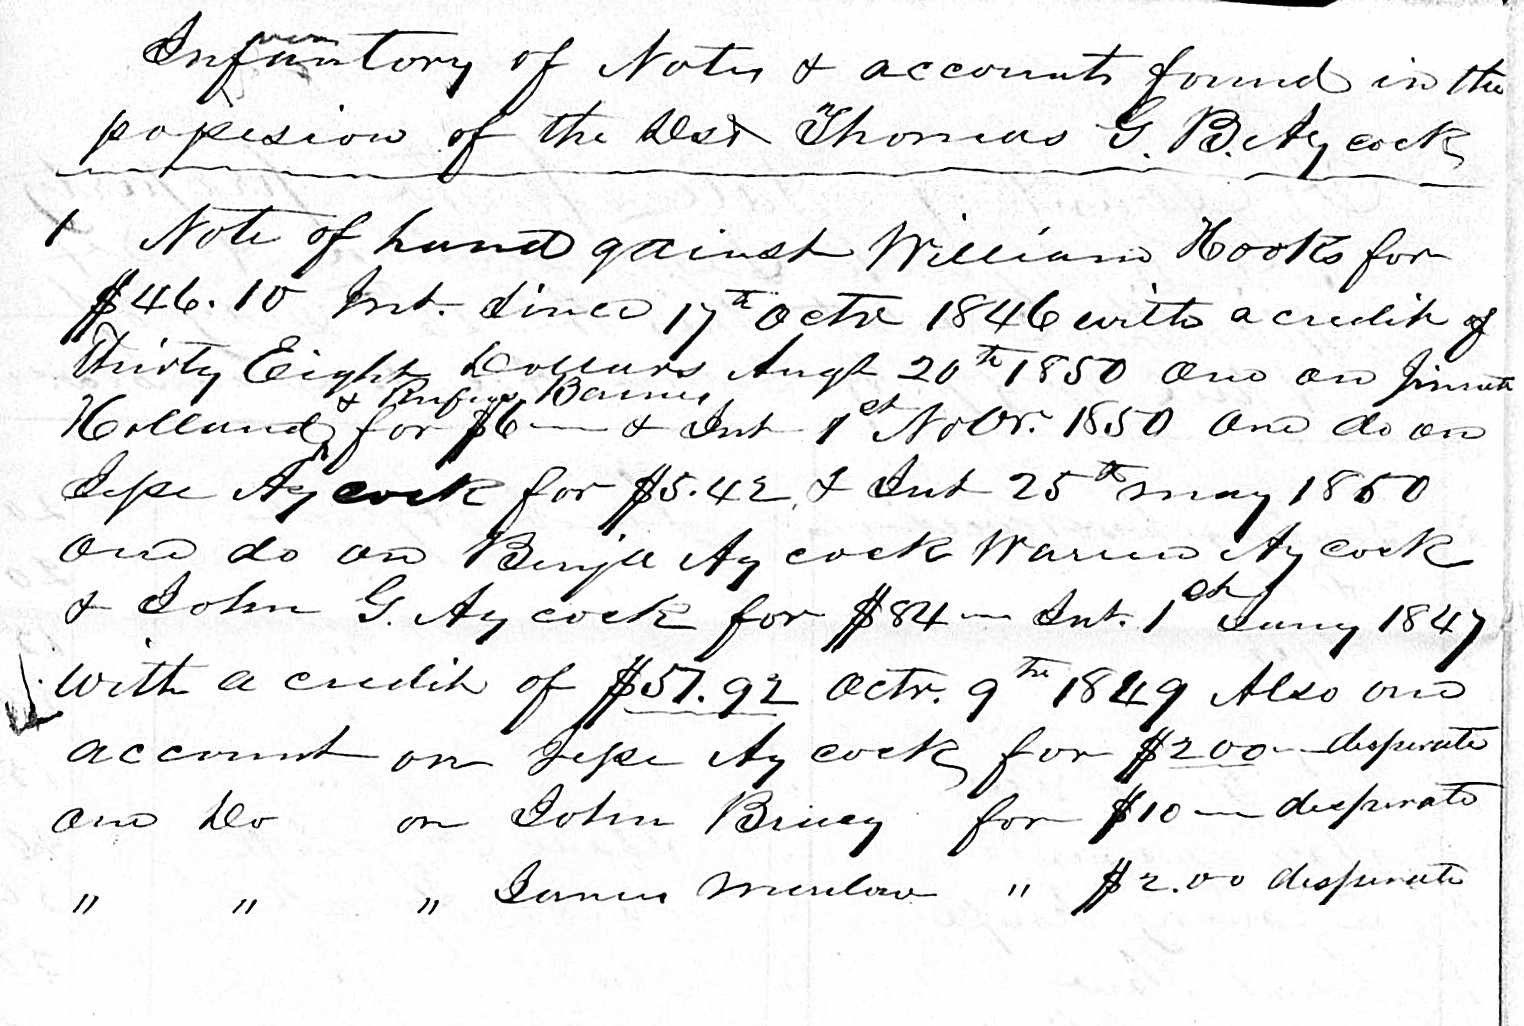 Infantory of Notes & accounts found in the
possesion of the Dest Thomas G. B. Aycock
1 Note of hand against William Hooks for
$46.10 Int. Since 17th Octr 1846 with a credit of
Thirty Eight Dollars Augt 20th 1850 One on
& Rufus Barnes
Holland for $6 — & Int 1st Nobr. 1850 One do on
Jesse Aycock for $5.42 & Int 25th may 1850
One do on Benja Aycock Warren Aycock
& John G. Aycock for $84 — Int. 1st Jany 1847
with a credit of $57.92 Octr. 9th 1849 Also one
account on Jesse Aycock for $2.00 — desperate
one Do on John Bricey for $10 — desperate
" " " James " $2.00 desperate